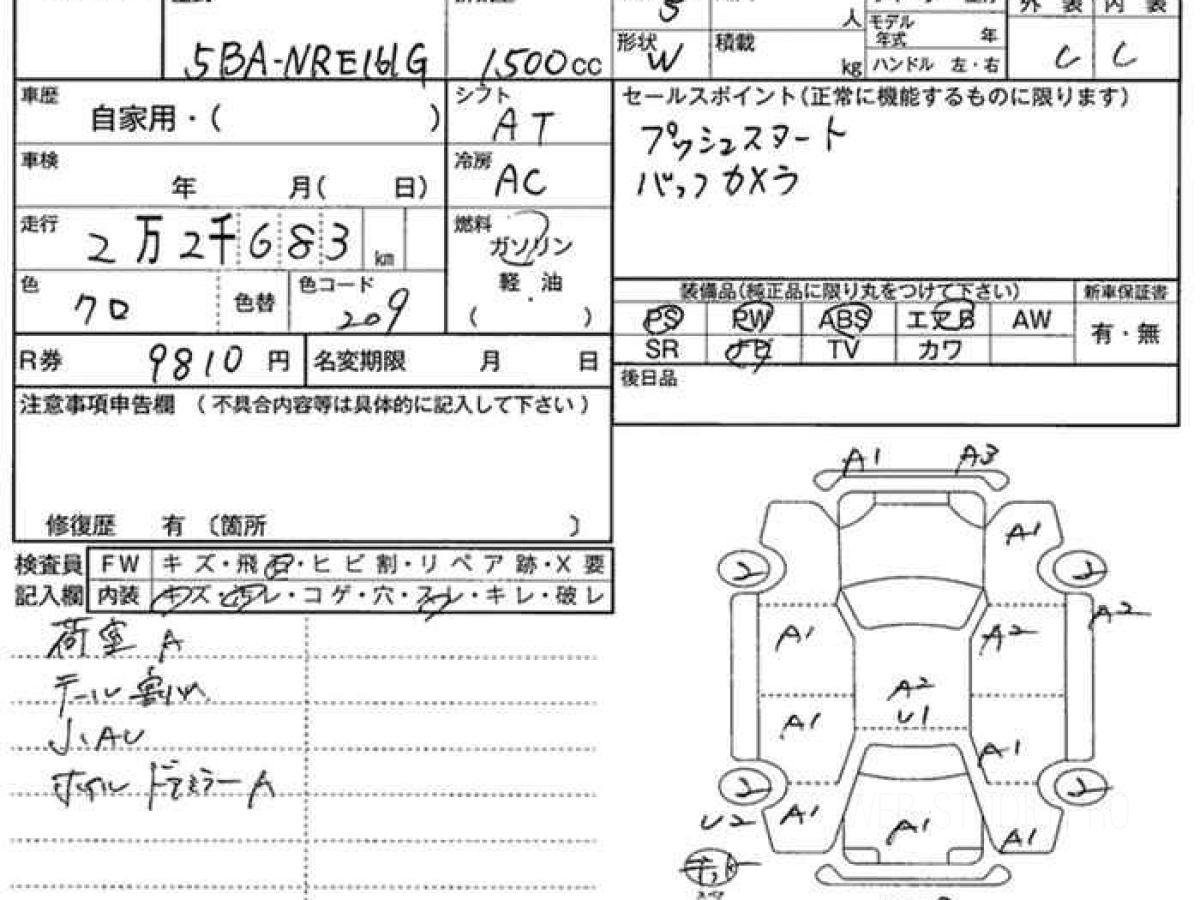 5
人
モデル
年式
年
外 装
内 装
5BA-NRE161G
1,500cc
形状
W
積載
kg
ハンドル 左・右
C
C
車歴
自家用・( )
シフト
AT
セールスポイント(正常に機能するものに限ります)
プッシュスタート
バックカメラ
車検
年 月( 日)
冷房
AC
走行
2万2千683
km
燃料
ガソリン
軽・油
( )
色
クロ
色替
色コード
209
装備品(純正品に限り丸をつけて下さい)
新車保証書
PS PW ABS エアB AW
有・無
SR ナビ TV カワ
R券
9810 円
名変期限 月 日
後日品
注意事項申告欄 (不具合内容等は具体的に記入して下さい)
修復歴 有 〔箇所 〕
検査員
記入欄
FW キズ・飛石・ヒビ割・リペア跡・X要
内装 キズ・汚レ・コゲ・穴・スレ・キレ・破レ
荷室 A
テール割れ
小AU
ホイル ドアミラーA
A1 A3
A1
2 2
A2
A1 A2
A2
U1
A1 A1
2 2
U2 A1 A1 A1